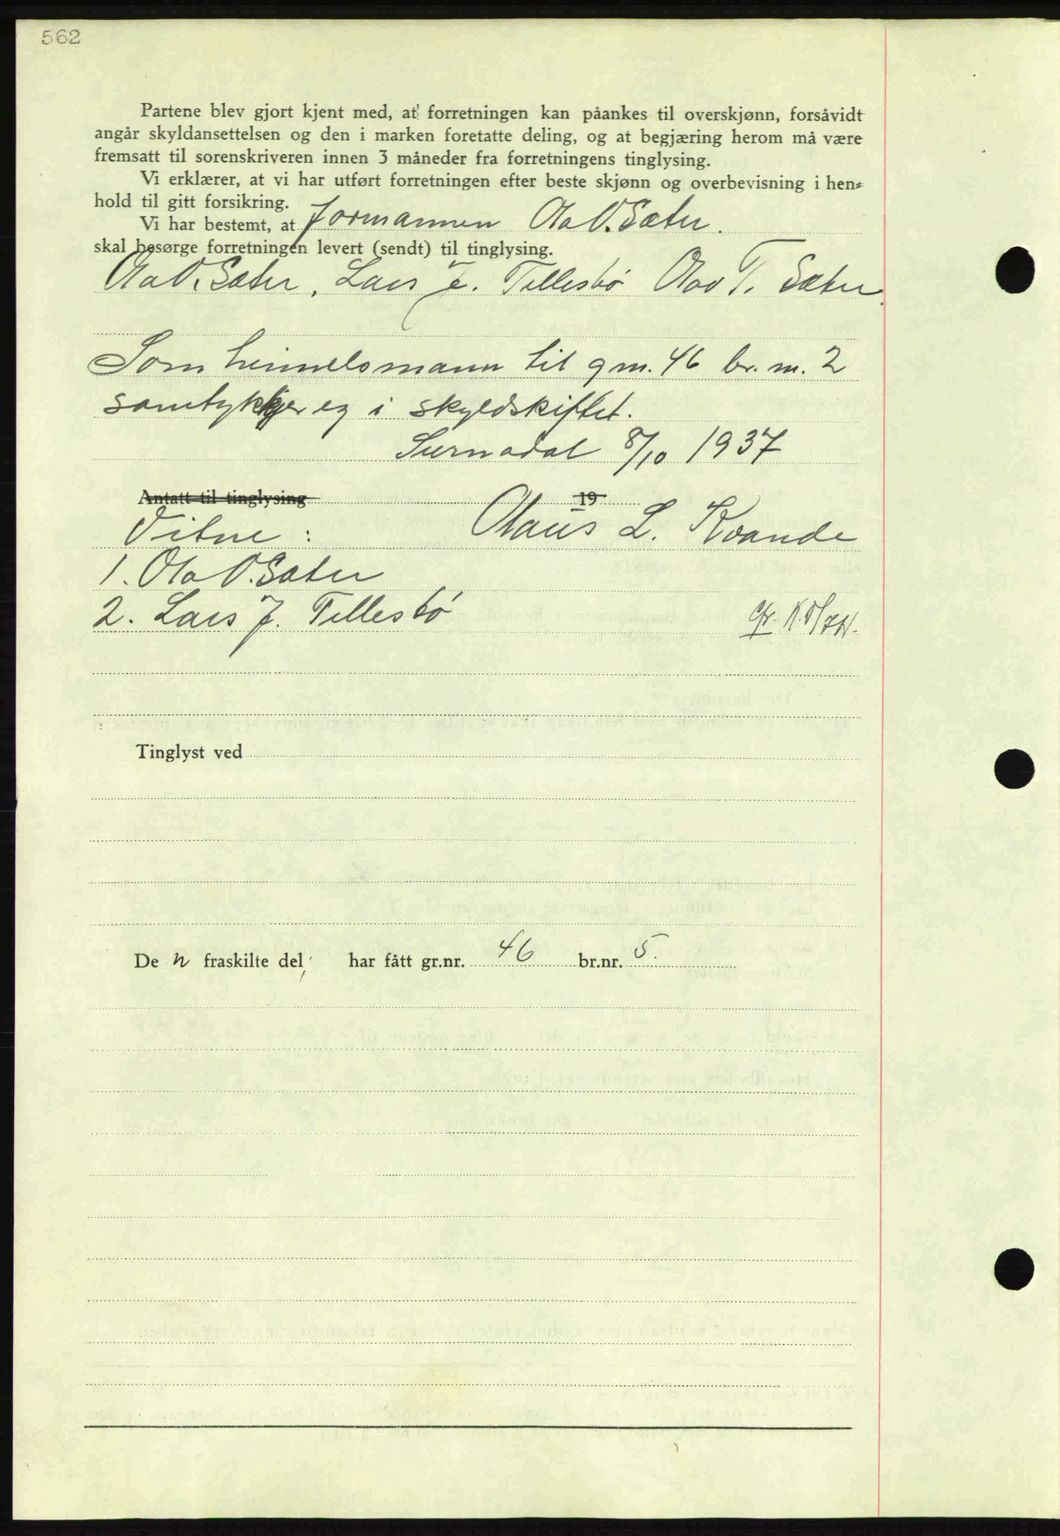 562
Partene blev gjort kjent med, at forretningen kan påankes til overskjønn, forsåvidt
angår skyldansettelsen og den i marken foretatte deling, og at begjæring herom må være
fremsatt til sorenskriveren innen 3 måneder fra forretningens tinglysing.
Vi erklærer, at vi har utført forretningen efter beste skjønn og overbevisning i hen-
hold til gitt forsikring.
Vi har bestemt, at formannen Ola O. Sæter.
skal besørge forretningen levert (sendt) til tinglysing.
Ola O. Sæter, Lars J. Tellesbø Olav T. Sæter.
Som heimelsmann til g nr. 46 br. nr. 2
samtykkjer eg i skyldskiftet.
Surnadal 8/10 1937
Antatt til tinglysing 19
Vitne : Olaus L. Kvande
1. Ola O. Sæter
2. Lars J. Tellesbø
Tinglyst ved
De n fraskilte del har fått gr.nr. 46 br.nr. 5.